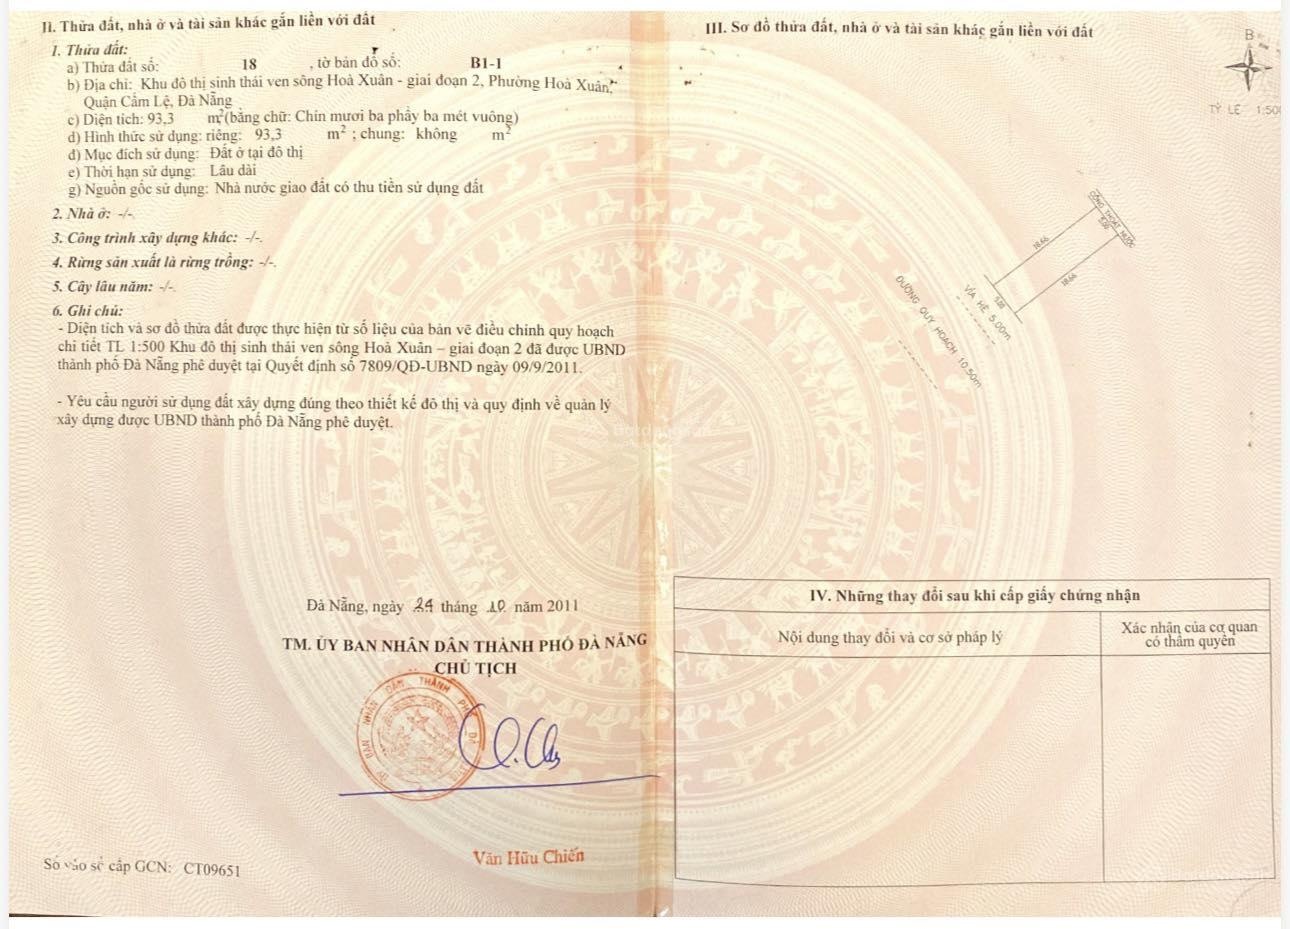 II. Thửa đất, nhà ở và tài sản khác gắn liền với đất
1. Thửa đất:
a) Thửa đất số: 18 , tờ bản đồ số: B1-1
b) Địa chỉ: Khu đô thị sinh thái ven sông Hoà Xuân - giai đoạn 2, Phường Hoà Xuân,
Quận Cẩm Lệ, Đà Nẵng
c) Diện tích: 93,3 m² (bằng chữ: Chín mươi ba phẩy ba mét vuông)
d) Hình thức sử dụng: riêng: 93,3 m² ; chung: không m²
đ) Mục đích sử dụng: Đất ở tại đô thị
e) Thời hạn sử dụng: Lâu dài
g) Nguồn gốc sử dụng: Nhà nước giao đất có thu tiền sử dụng đất
2. Nhà ở: -/-
3. Công trình xây dựng khác: -/-.
4. Rừng sản xuất là rừng trồng: -/-.
5. Cây lâu năm: -/-
6. Ghi chú:
- Diện tích và sơ đồ thửa đất được thực hiện từ số liệu của bản vẽ điều chỉnh quy hoạch
chi tiết TL 1:500 Khu đô thị sinh thái ven sông Hoà Xuân – giai đoạn 2 đã được UBND
thành phố Đà Nẵng phê duyệt tại Quyết định số 7809/QĐ-UBND ngày 09/9/2011.
- Yêu cầu người sử dụng đất xây dựng đúng theo thiết kế đô thị và quy định về quản lý
xây dựng được UBND thành phố Đà Nẵng phê duyệt.
Đà Nẵng, ngày 24 tháng 10 năm 2011
TM. ỦY BAN NHÂN DÂN THÀNH PHỐ ĐÀ NẴNG
CHỦ TỊCH
ỦY BAN NHÂN DÂN THÀNH PHỐ ĐÀ
Văn Hữu Chiến
Số vào sổ cấp GCN: CT09651
III. Sơ đồ thửa đất, nhà ở và tài sản khác gắn liền với đất
B
TỶ LỆ 1:500
CỐNG THOÁT NƯỚC
5.00
18.66
18.66
5.00
VỈA HÈ 5.00m
ĐƯỜNG QUY HOẠCH 10.50m
Batdongsan
IV. Những thay đổi sau khi cấp giấy chứng nhận
Nội dung thay đổi và cơ sở pháp lý
Xác nhận của cơ quan
có thẩm quyền